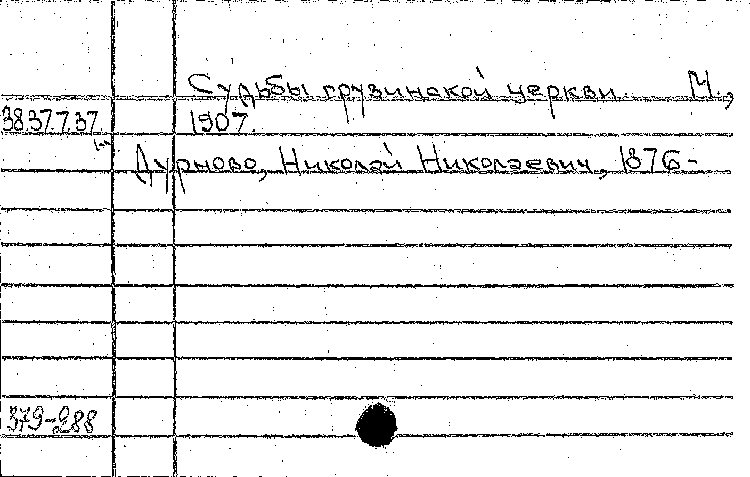 Судьбы грузинской церкви. М.,
3837.737. 1907.
Дурново, Николай Николаевич, 1876-
379-288